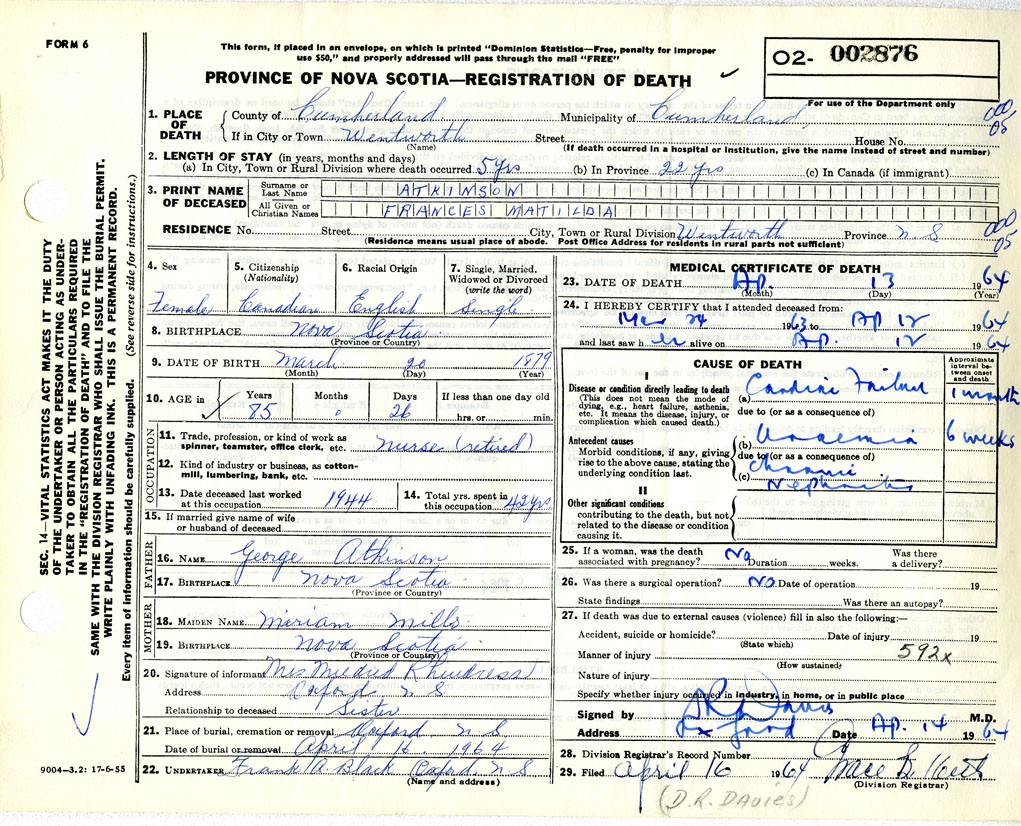 FORM 6
This form, if placed in an envelope, on which is printed "Dominion Statistics—Free, penalty for improper
use $50," and properly addressed will pass through the mail "FREE"
PROVINCE OF NOVA SCOTIA—REGISTRATION OF DEATH ✓
O2- 002876
For use of the Department only
1. PLACE OF DEATH { County of Cumberland Municipality of Cumberland, 000 05
If in City or Town Wentworth Street House No.
(Name) (If death occurred in a hospital or institution, give the name instead of street and number)
2. LENGTH OF STAY (in years, months and days)
(a) In City, Town or Rural Division where death occurred 5 yrs (b) In Province 22 yrs (c) In Canada (if immigrant)
3. PRINT NAME OF DECEASED { Surname or Last Name ATKINSON
All Given or Christian Names FRANCES MATILDA
RESIDENCE No. Street City, Town or Rural Division Wentworth Province N S 000 05
(Residence means usual place of abode. Post Office Address for residents in rural parts not sufficient)
4. Sex 5. Citizenship (Nationality) 6. Racial Origin 7. Single, Married, Widowed or Divorced (write the word)
Female Canadian English Single
8. BIRTHPLACE Nova Scotia
(Province or Country)
9. DATE OF BIRTH March 20 1879
(Month) (Day) (Year)
10. AGE in Years Months Days If less than one day old
85 0 26 hrs. or min.
OCCUPATION
11. Trade, profession, or kind of work as
spinner, teamster, office clerk, etc. Nurse (retired)
12. Kind of industry or business, as cotton-
mill, lumbering, bank, etc.
13. Date deceased last worked at this occupation 1944 14. Total yrs. spent in this occupation 42 yrs
15. If married give name of wife
or husband of deceased
FATHER
16. NAME George Atkinson
17. BIRTHPLACE Nova Scotia
(Province or Country)
MOTHER
18. MAIDEN NAME Miriam Mills
19. BIRTHPLACE Nova Scotia
(Province or Country)
20. Signature of informant Mrs
Address Oxford N S
Relationship to deceased Sister
21. Place of burial, cremation or removal Oxford N. S.
Date of burial or removal April 16, 1964
22. UNDERTAKER Frank A. Black Oxford N S
(Name and address)
MEDICAL CERTIFICATE OF DEATH
23. DATE OF DEATH Ap. 13 1964
(Month) (Day) (Year)
24. I HEREBY CERTIFY that I attended deceased from:
24 1963 to Ap 12 1964
and last saw her alive on Ap. 12 1964
CAUSE OF DEATH
Approximate interval between onset and death
I
Disease or condition directly leading to death
(This does not mean the mode of
dying, e.g., heart failure, asthenia,
etc. It means the disease, injury, or
complication which caused death.)
(a) Cardiac Failure 1 month
due to (or as a consequence of)
Antecedent causes
Morbid conditions, if any, giving
rise to the above cause, stating the
underlying condition last.
(b) Uraemia 6 weeks
due to (or as a consequence of)
(c) Chronic
Nephritis
II
Other significant conditions
contributing to the death, but not
related to the disease or condition
causing it.
25. If a woman, was the death associated with pregnancy? No Duration weeks. Was there a delivery?
26. Was there a surgical operation? No Date of operation 19
State findings Was there an autopsy?
27. If death was due to external causes (violence) fill in also the following:—
Accident, suicide or homicide? Date of injury 19
(State which)
Manner of injury 592x
(How sustained)
Nature of injury
Specify whether injury occurred in industry, in home, or in public place
Signed by D R Davies M.D.
Address Oxford Date Ap. 14 1964
28. Division Registrar's Record Number
29. Filed April 16 1964
(Division Registrar)
(D.R. DAVIES)
SEC. 14—VITAL STATISTICS ACT MAKES IT THE DUTY
OF THE UNDERTAKER OR PERSON ACTING AS UNDER-
TAKER TO OBTAIN ALL THE PARTICULARS REQUIRED
IN THE "REGISTRATION OF DEATH" AND TO FILE THE
SAME WITH THE DIVISION REGISTRAR WHO SHALL ISSUE THE BURIAL PERMIT.
WRITE PLAINLY WITH UNFADING INK. THIS IS A PERMANENT RECORD.
Every item of information should be carefully supplied. (See reverse side for instructions.)
9004-3.2: 17-6-55